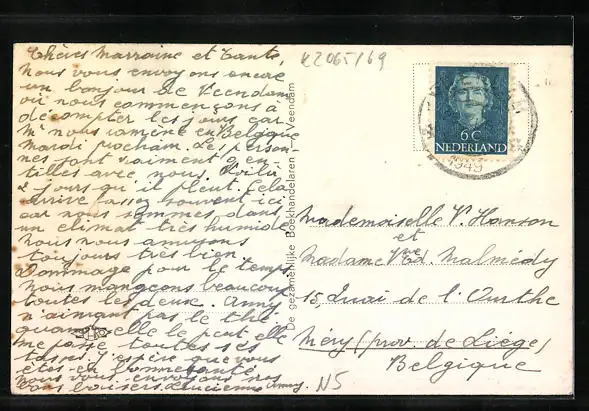 Chères Marraine et tante,
Nous vous envoyons encore
un bonjour de Veendam
où nous commençons à
décompter les jours car
Mr nous ramène en Belgique
mardi prochain. Les person
nes sont vraiment gen
tilles avec nous. Voilà
2 jours qu'il pleut. Cela
arrive assez souvent ici
car nous sommes dans
un climat très humide
Nous nous amusons
toujours très bien
Dommage pour le temps
Nous mangeons beaucoup
toutes les deux. Anny
n'aimant pas le thé
quand elle le peut elle
me passe toutes ses
tasses. J'espère que vous
êtes en bonne santé
nous vous envoyons nos
bons baisers. Lucienne Anny.
K2065/69
De gezamenlijke Boekhandelaren - Veendam
6C
NEDERLAND
1949
Mademoiselle V. Hanson
et
Madame Vve Ed. Malmédy
15, Quai de l'Ourthe
Méry (prov. de Liège)
Belgique
N5